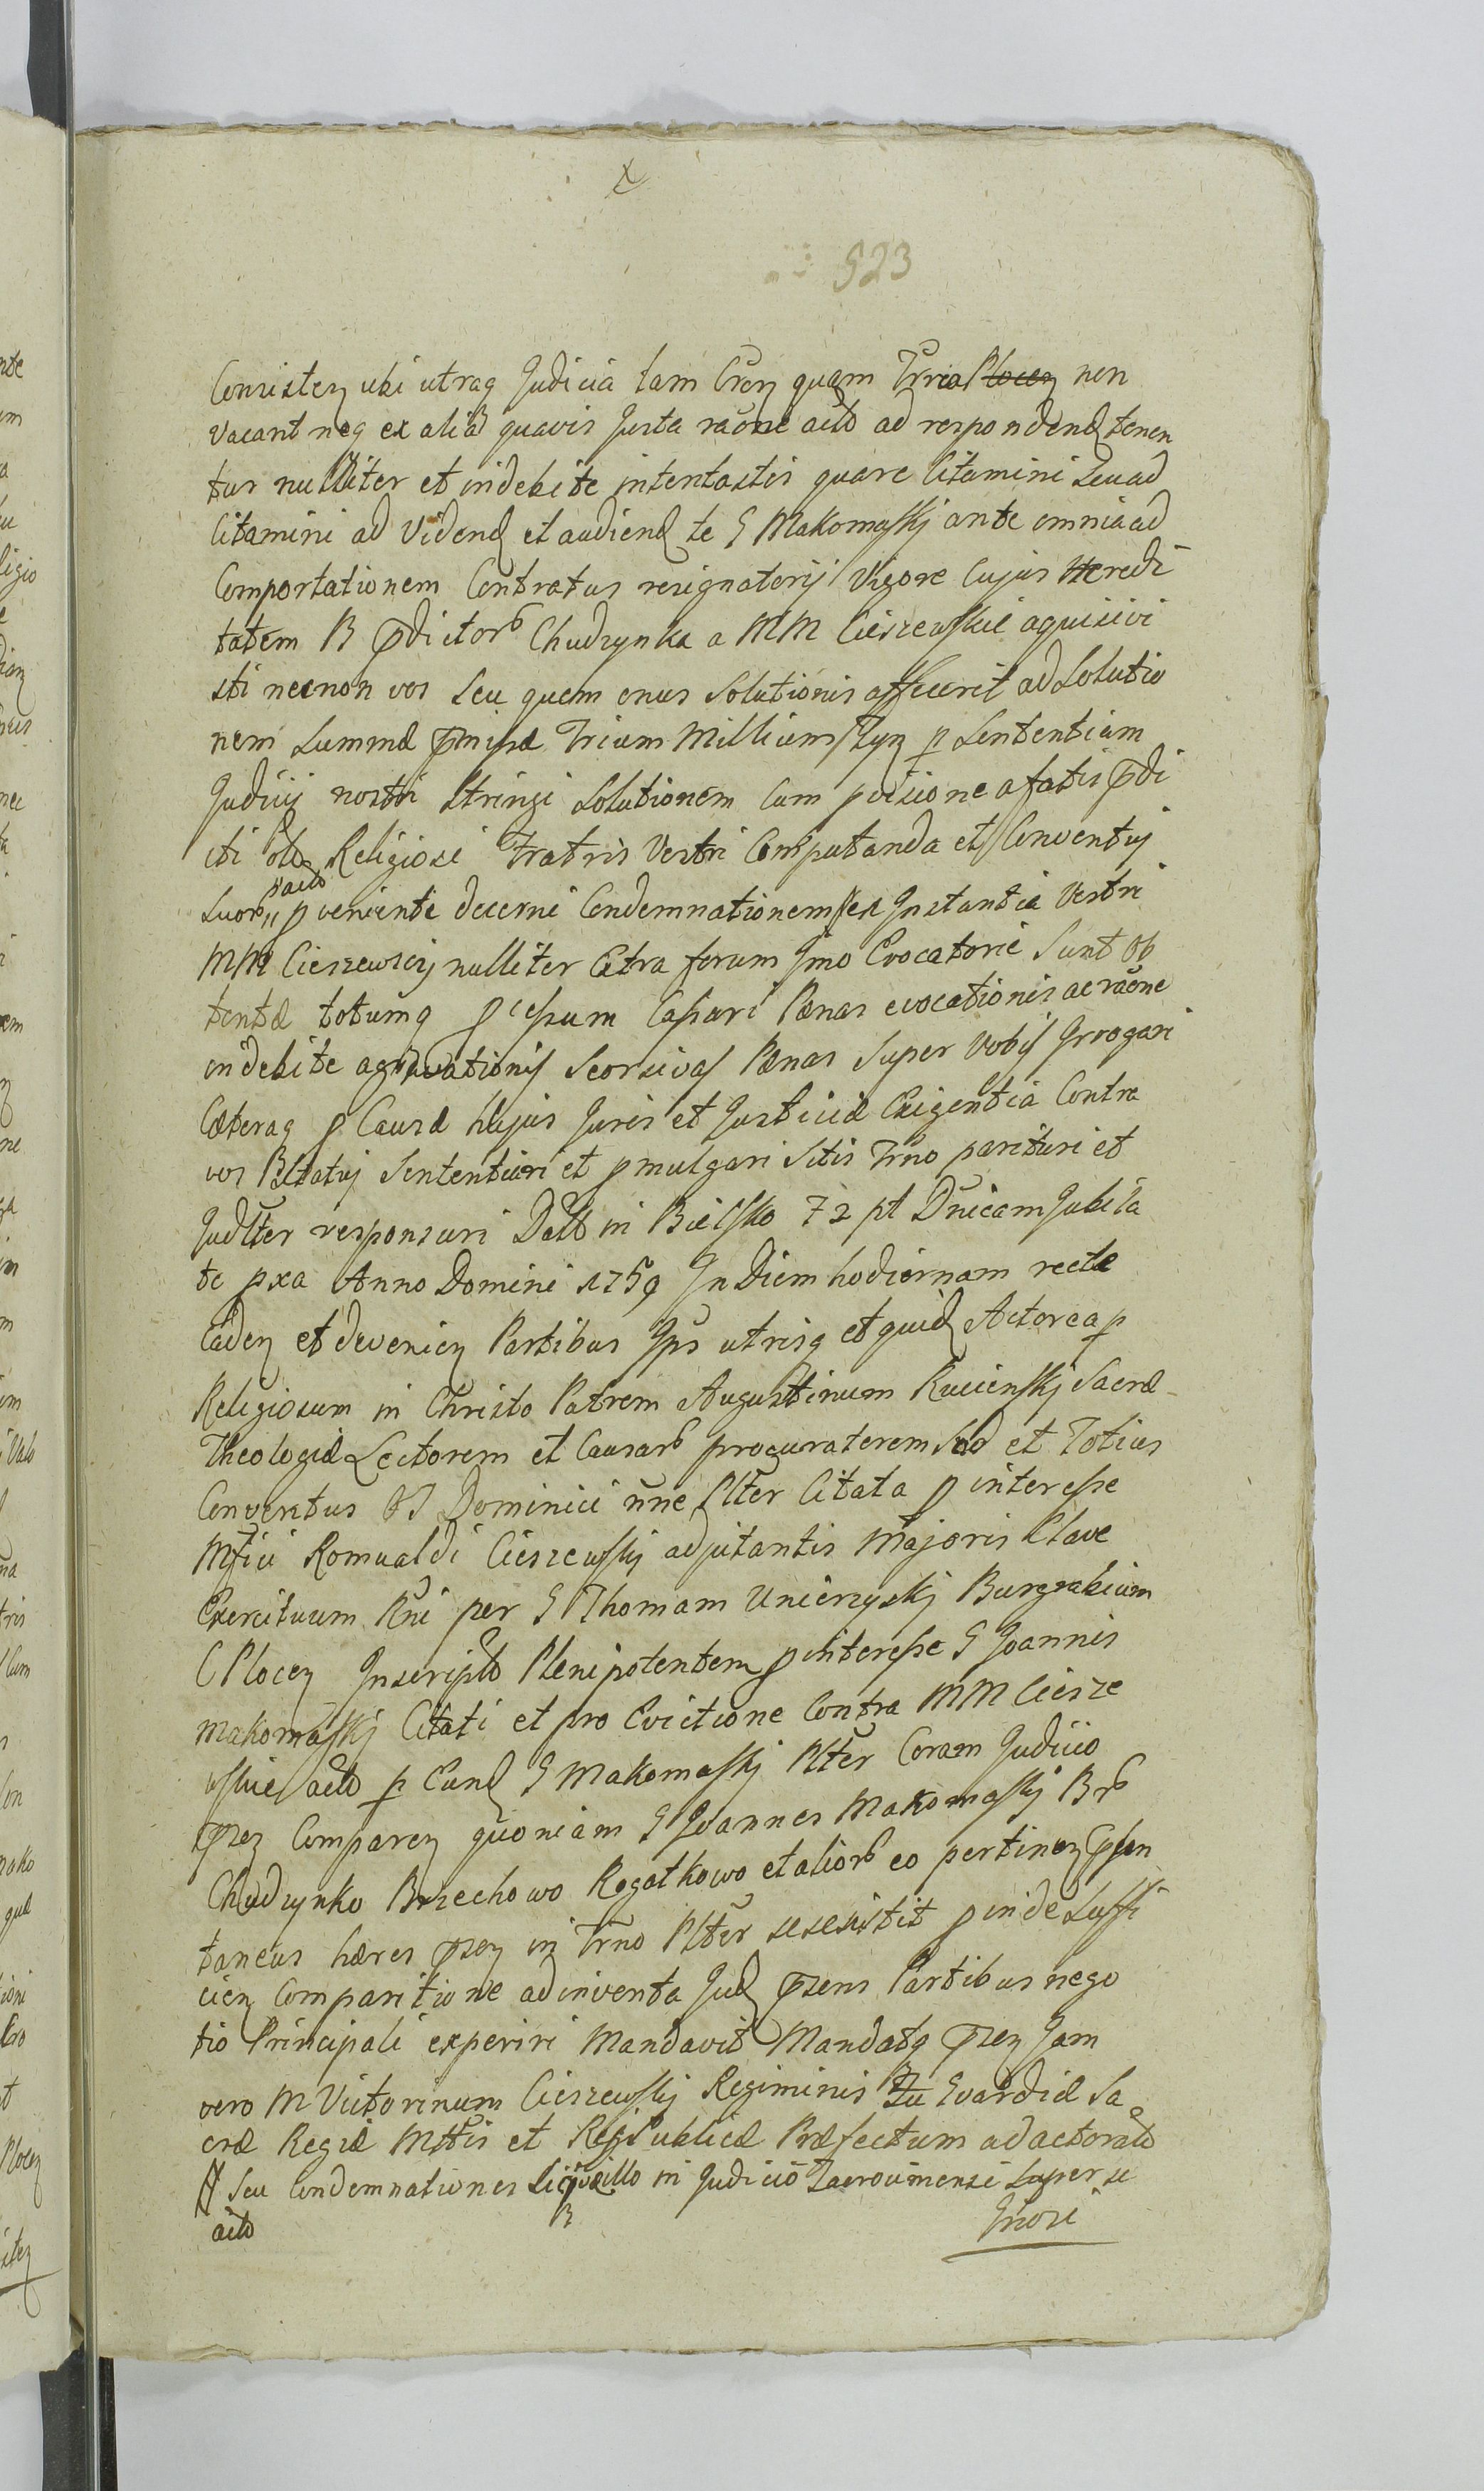 523
Consisten ubi utraq Judicia tam Cren quam Trria Plocen non
vacant neq ex alia quavis Justa raone acto ad respondend tenen
tur nulliter et indebite intentastis quare Citamini seu ad
Citamini ad Vidend et audiend te G Makomaskj ante omnia ad
Comportationem Contratus resignatorij Vigore Cujus Heredi
tatem B pdictorb Chudzynka a MM Cieszewskie aquisivi
sti necnon vos Seu quem onus Solutionis affecerit ad Solutio
nem Summæ pmissæ Trium Millium p Sententiam
Judicij nostri Stringi Solutionem Cum a fatis pdi
cti olb Religiosi Fratris Vestri Computanda et Conventuj
Suorb pacto pveniente decerni Condemnationem ex Instantia Vestri
MM Cieszewscij nulliter Citra forum Imo Evocatorie Sunt Ob
tentæ totumq pcessum Cassari Pænas evocationis ac raone
indebite agravationis Seorsivas Pænas Super Vobis Irrogari
Cæteraq p Causæ hujus Juris et Justiciæ Exigentia Contra
vos Sententiari et pmulgari Sitis Trno parituri et
Judlter responsuri Datt in Bielsko 72 pt Dnicam Jubila
te pxa Anno Domini 1759 In Diem hodiernam recte
Caden et devenien Partibus Ips utrisq et quid Actorea p
Religiosum in Christo Patrem Augustinum Rucienskj Sacræ
Theologiæ Lectorem et Causarb procuratorem Suo et Totius
Conventus OS Dominici nne Plter Citata p interesse
Mfici Romualdi Cieszewskj adjutantis Majoris Clavæ
Exercituum Rni per G Thomam Unierzyskj Burgrabium
C Plocen Inscripto Plenipotentem p interesse G Joannis
Makomaskj Citati et pro Evictione Contra MM Ciesze
wskie acto p Eund G Makomaskj Plter Coram Judicio
psen Comparen quoniam G Joannes Makomaskj Brb
Chudzynko Brzechowo Rogotkowo et aliorb eo pertinen
taneus hæres psen in Trno Plter sesesistit pinde Suffi
cien Comparitione adinventa Jud psens Partibus nego
tio Principali experiri Mandavit Mandatq psen Jam
vero M Victorinum Cieszewskj Regiminis Gvardiæ Sa
cræ Regiæ Mttis et Reipublicæ Præfectum ad actoratb
# Seu Condemnationes Siquæ illo in Judicio Zacrocimensi Super se
acto Irrosi